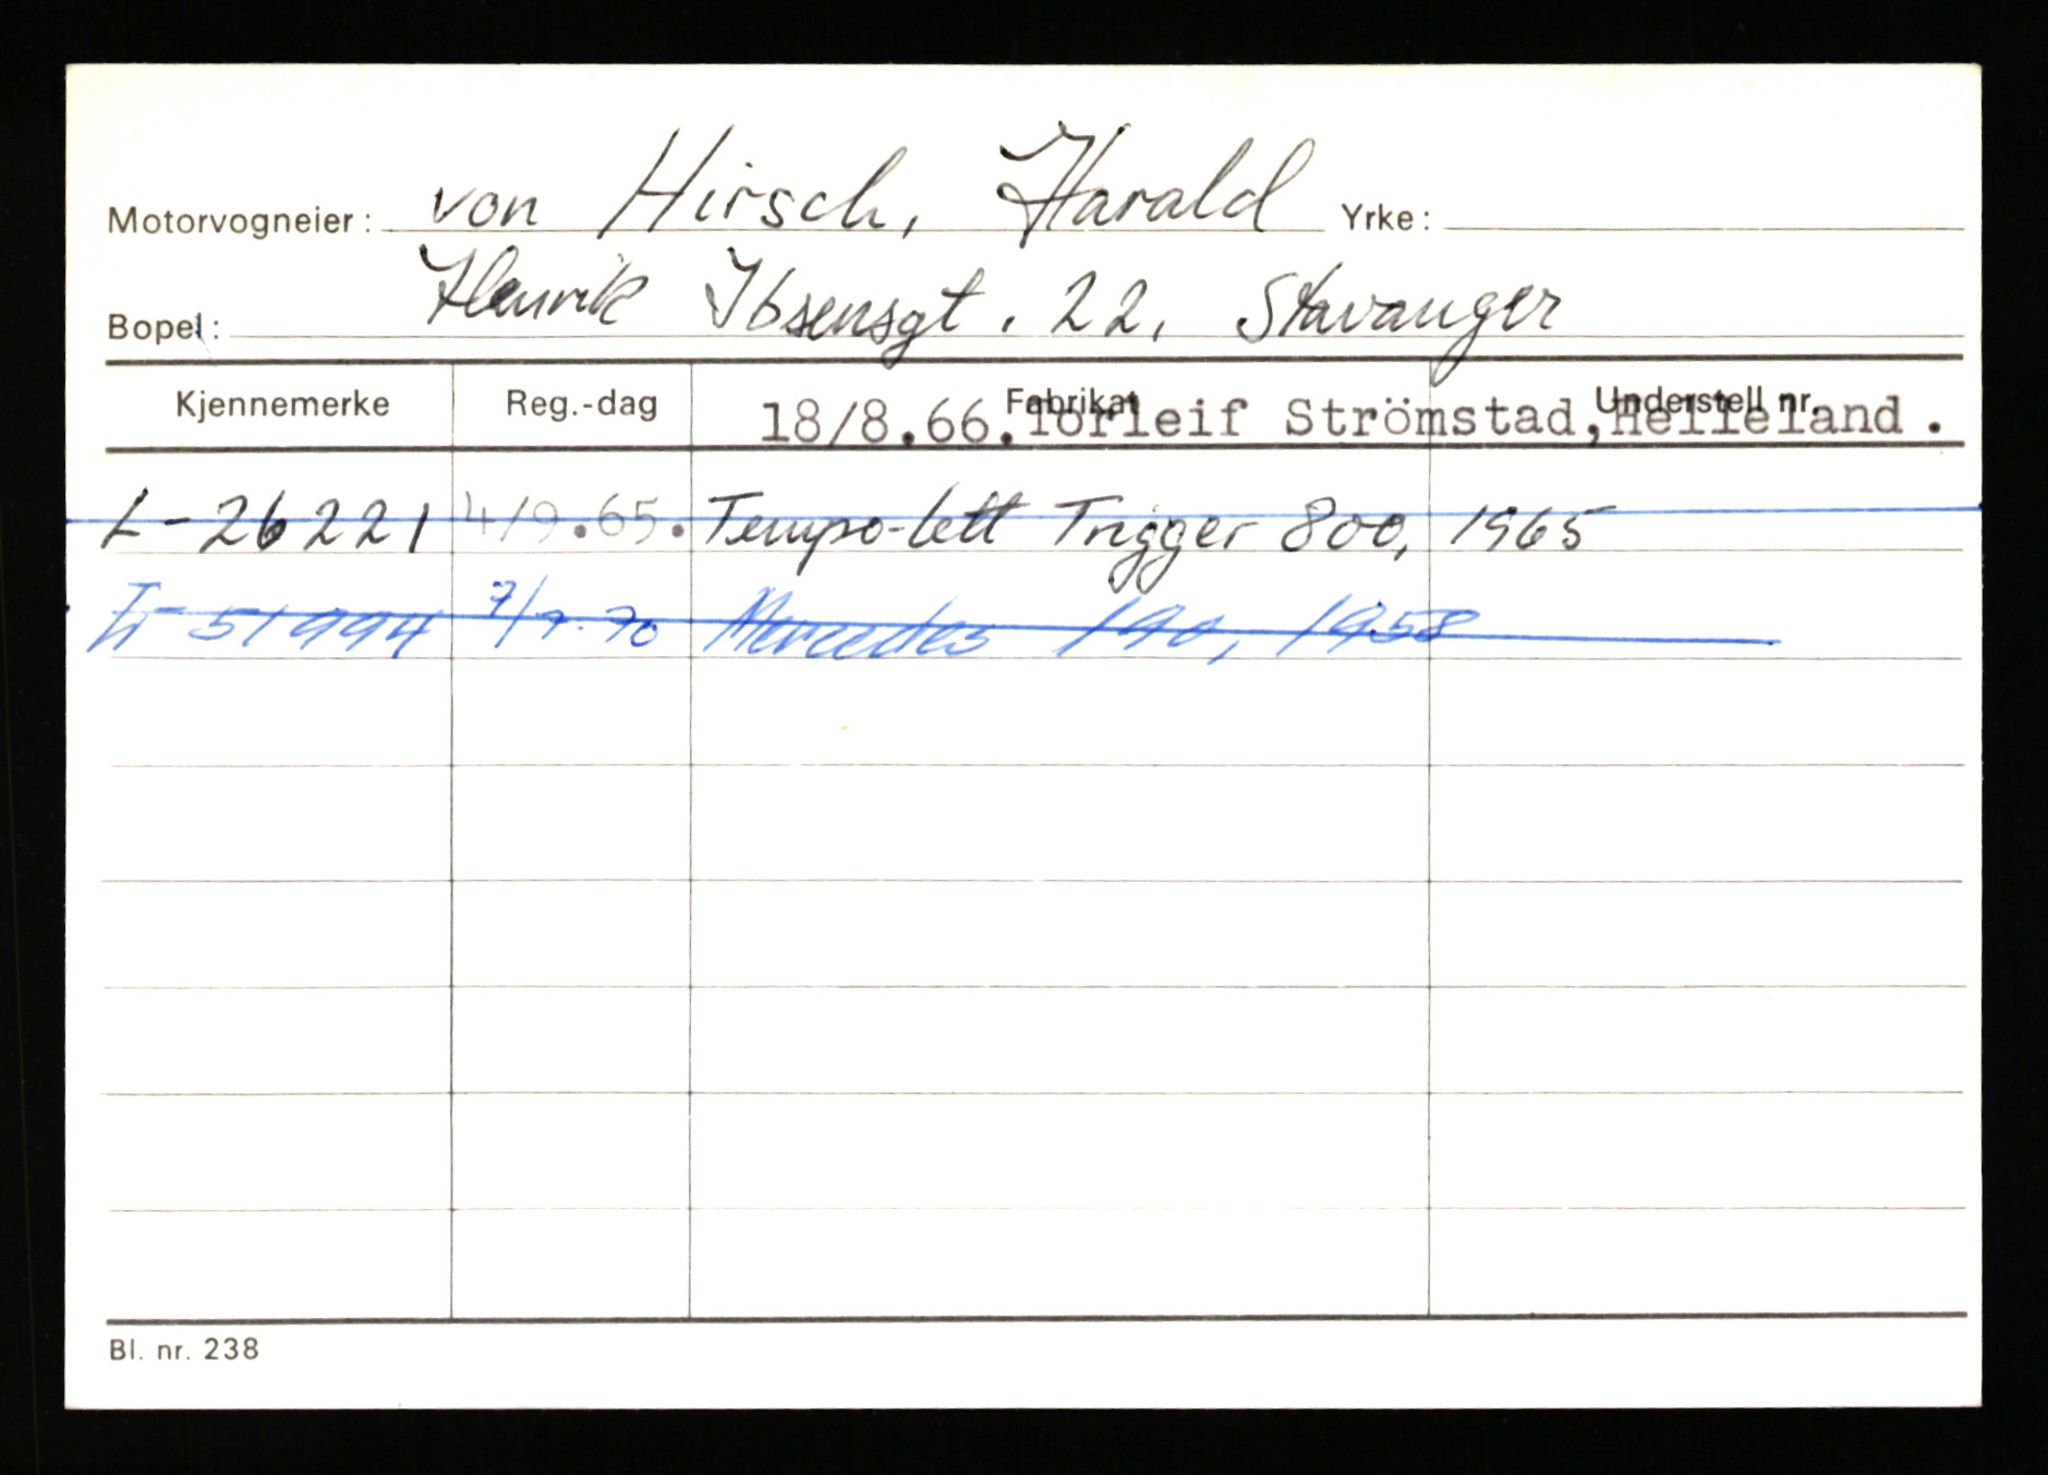 Motorvogneier: von Hirsch, Harald Yrke:
Bopel: Henrik Ibsensgt. 22, Stavanger
Kjennemerke Reg.-dag Fabrikat Understell nr.
18/8.66. Torleif Strömstad, Helleland.
L-26221 4/9.65. Tempo-lett Trigger 800, 1965
L-51994 7/7.70 Mercedes 190, 1958
Bl. nr. 238